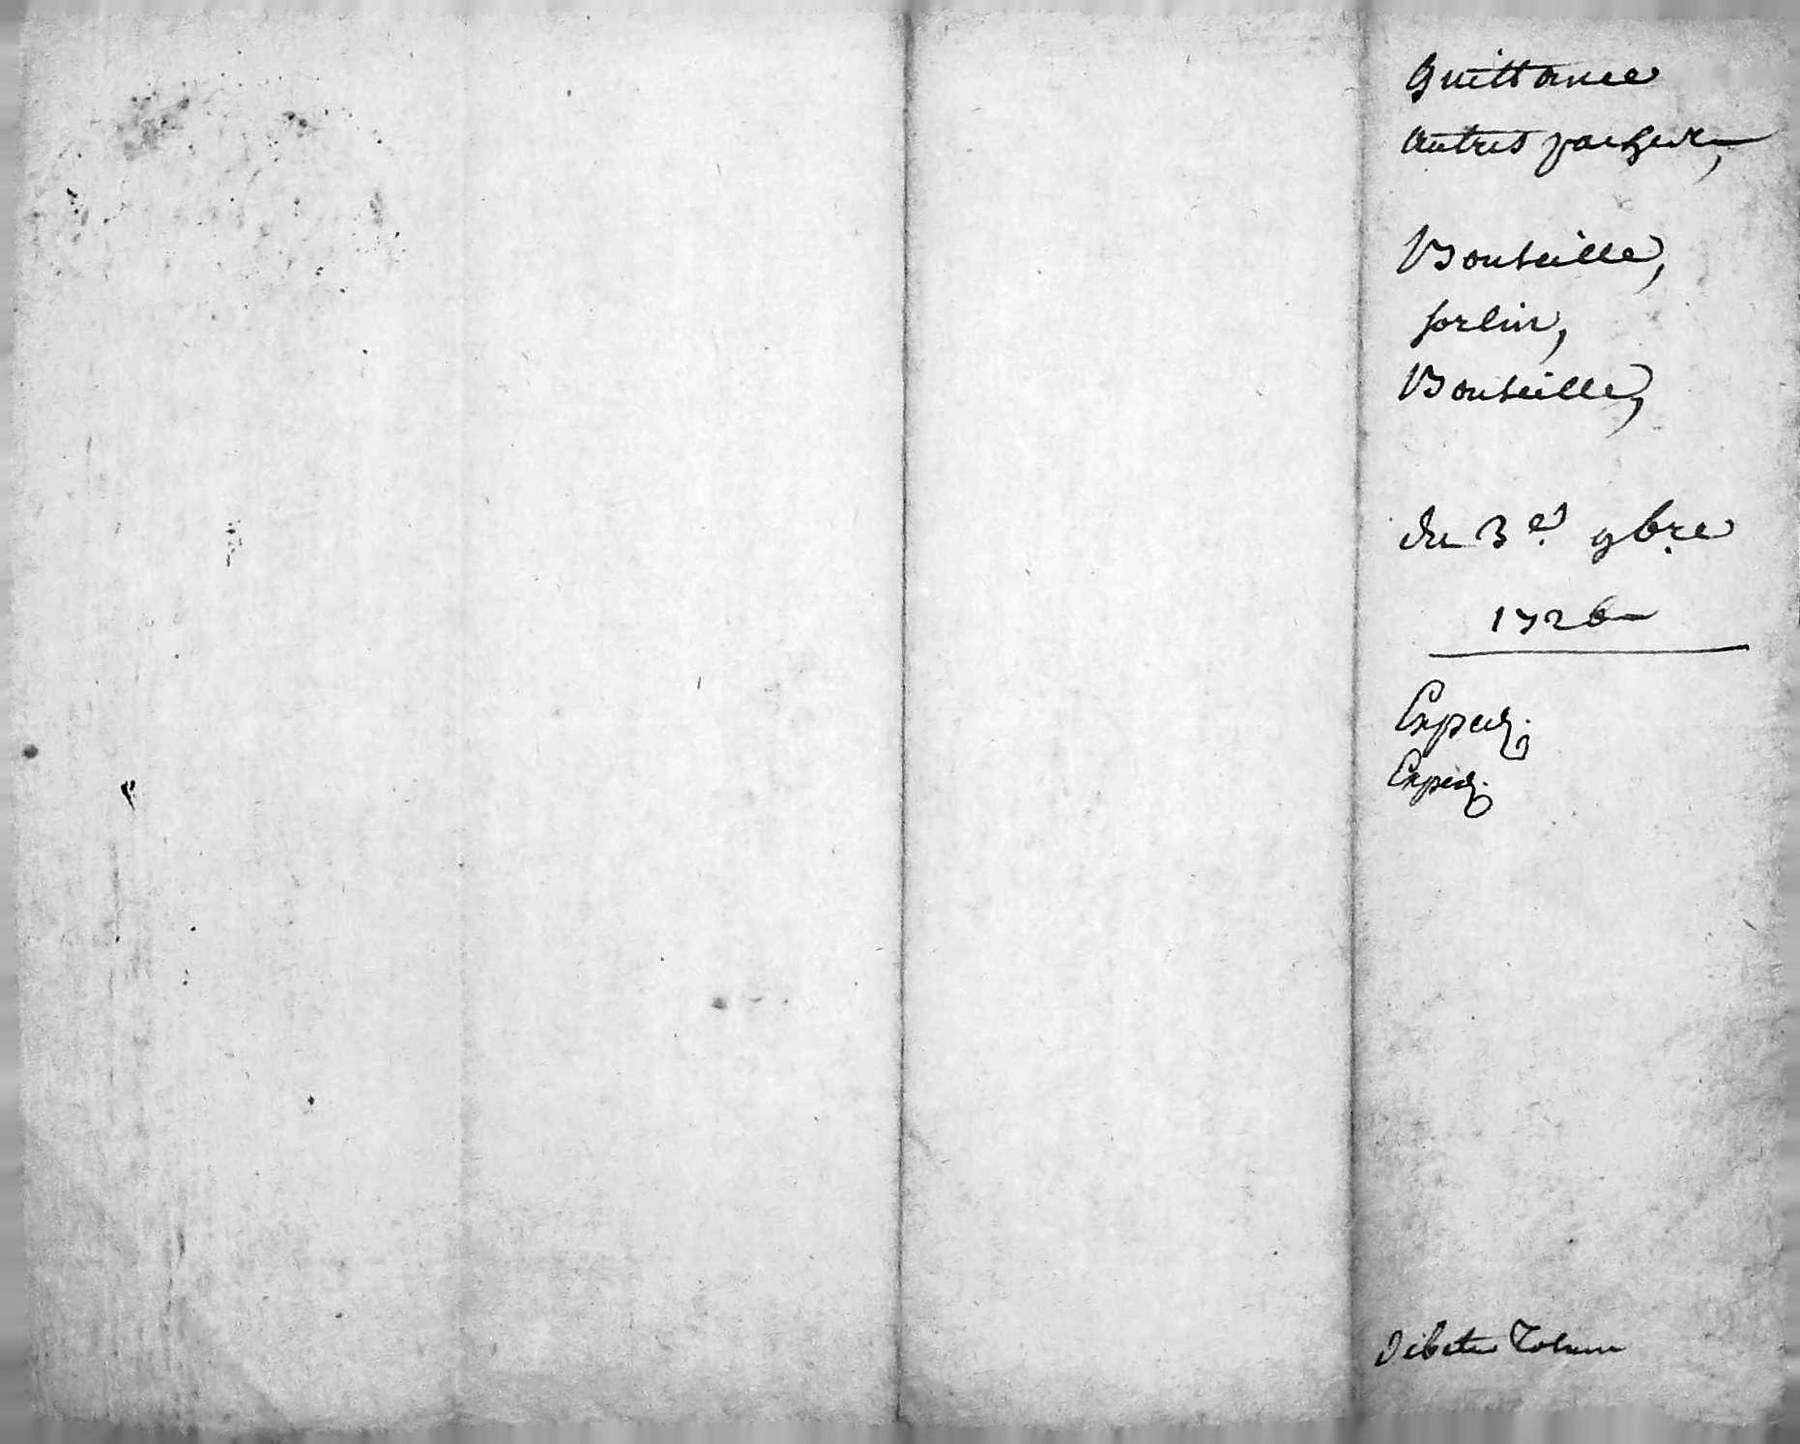 Quittance
autres parties,
Bouteille,
sorlin,
Bouteille,
du 3e. 9bre
1726
Exped.
Exped.
Debetur Totum